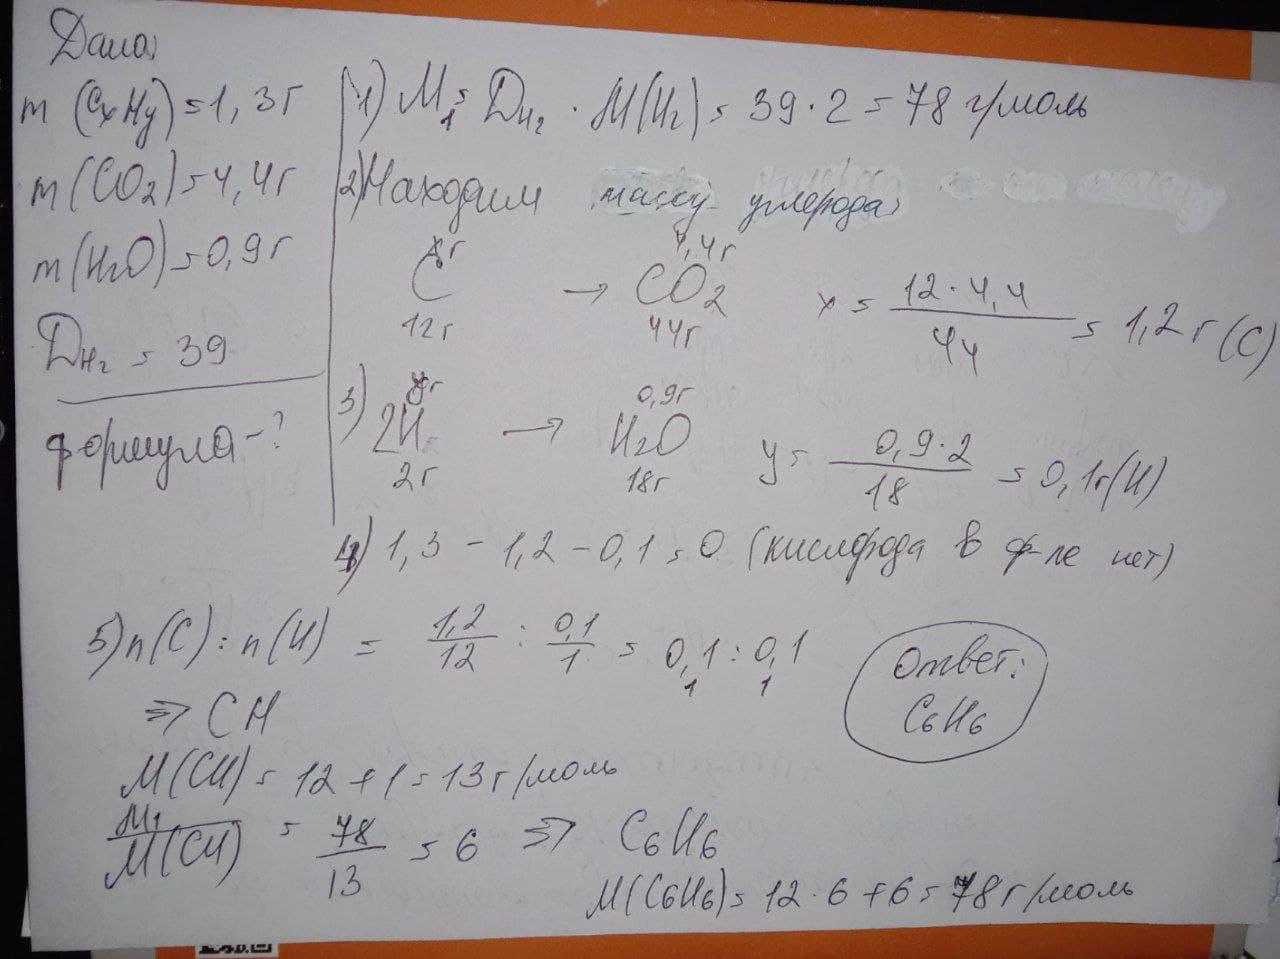 Дано:
m (CxHy) = 1,3г
m (CO2) = 4,4г
m (H2O) = 0,9г
DH2 = 39
формула - ?
1) M1 = DH2 · M(H2) = 39 · 2 = 78 г/моль
2) Находим массу углерода:
xг 4,4г
C → CO2 x = 12 · 4,4 / 44 = 1,2г (C)
12г 44г
3) yг 0,9г
2H → H2O y = 0,9 · 2 / 18 = 0,1г (H)
2г 18г
4) 1,3 - 1,2 - 0,1 = 0 (кислорода в ф-ле нет)
5) n(C) : n(H) = 1,2/12 : 0,1/1 = 0,1 : 0,1
1 1
⇒ CH
M(CH) = 12 + 1 = 13 г/моль
M1/M(CH) = 78/13 = 6 ⇒ C6H6
M(C6H6) = 12 · 6 + 6 = 78 г/моль
Ответ:
C6H6